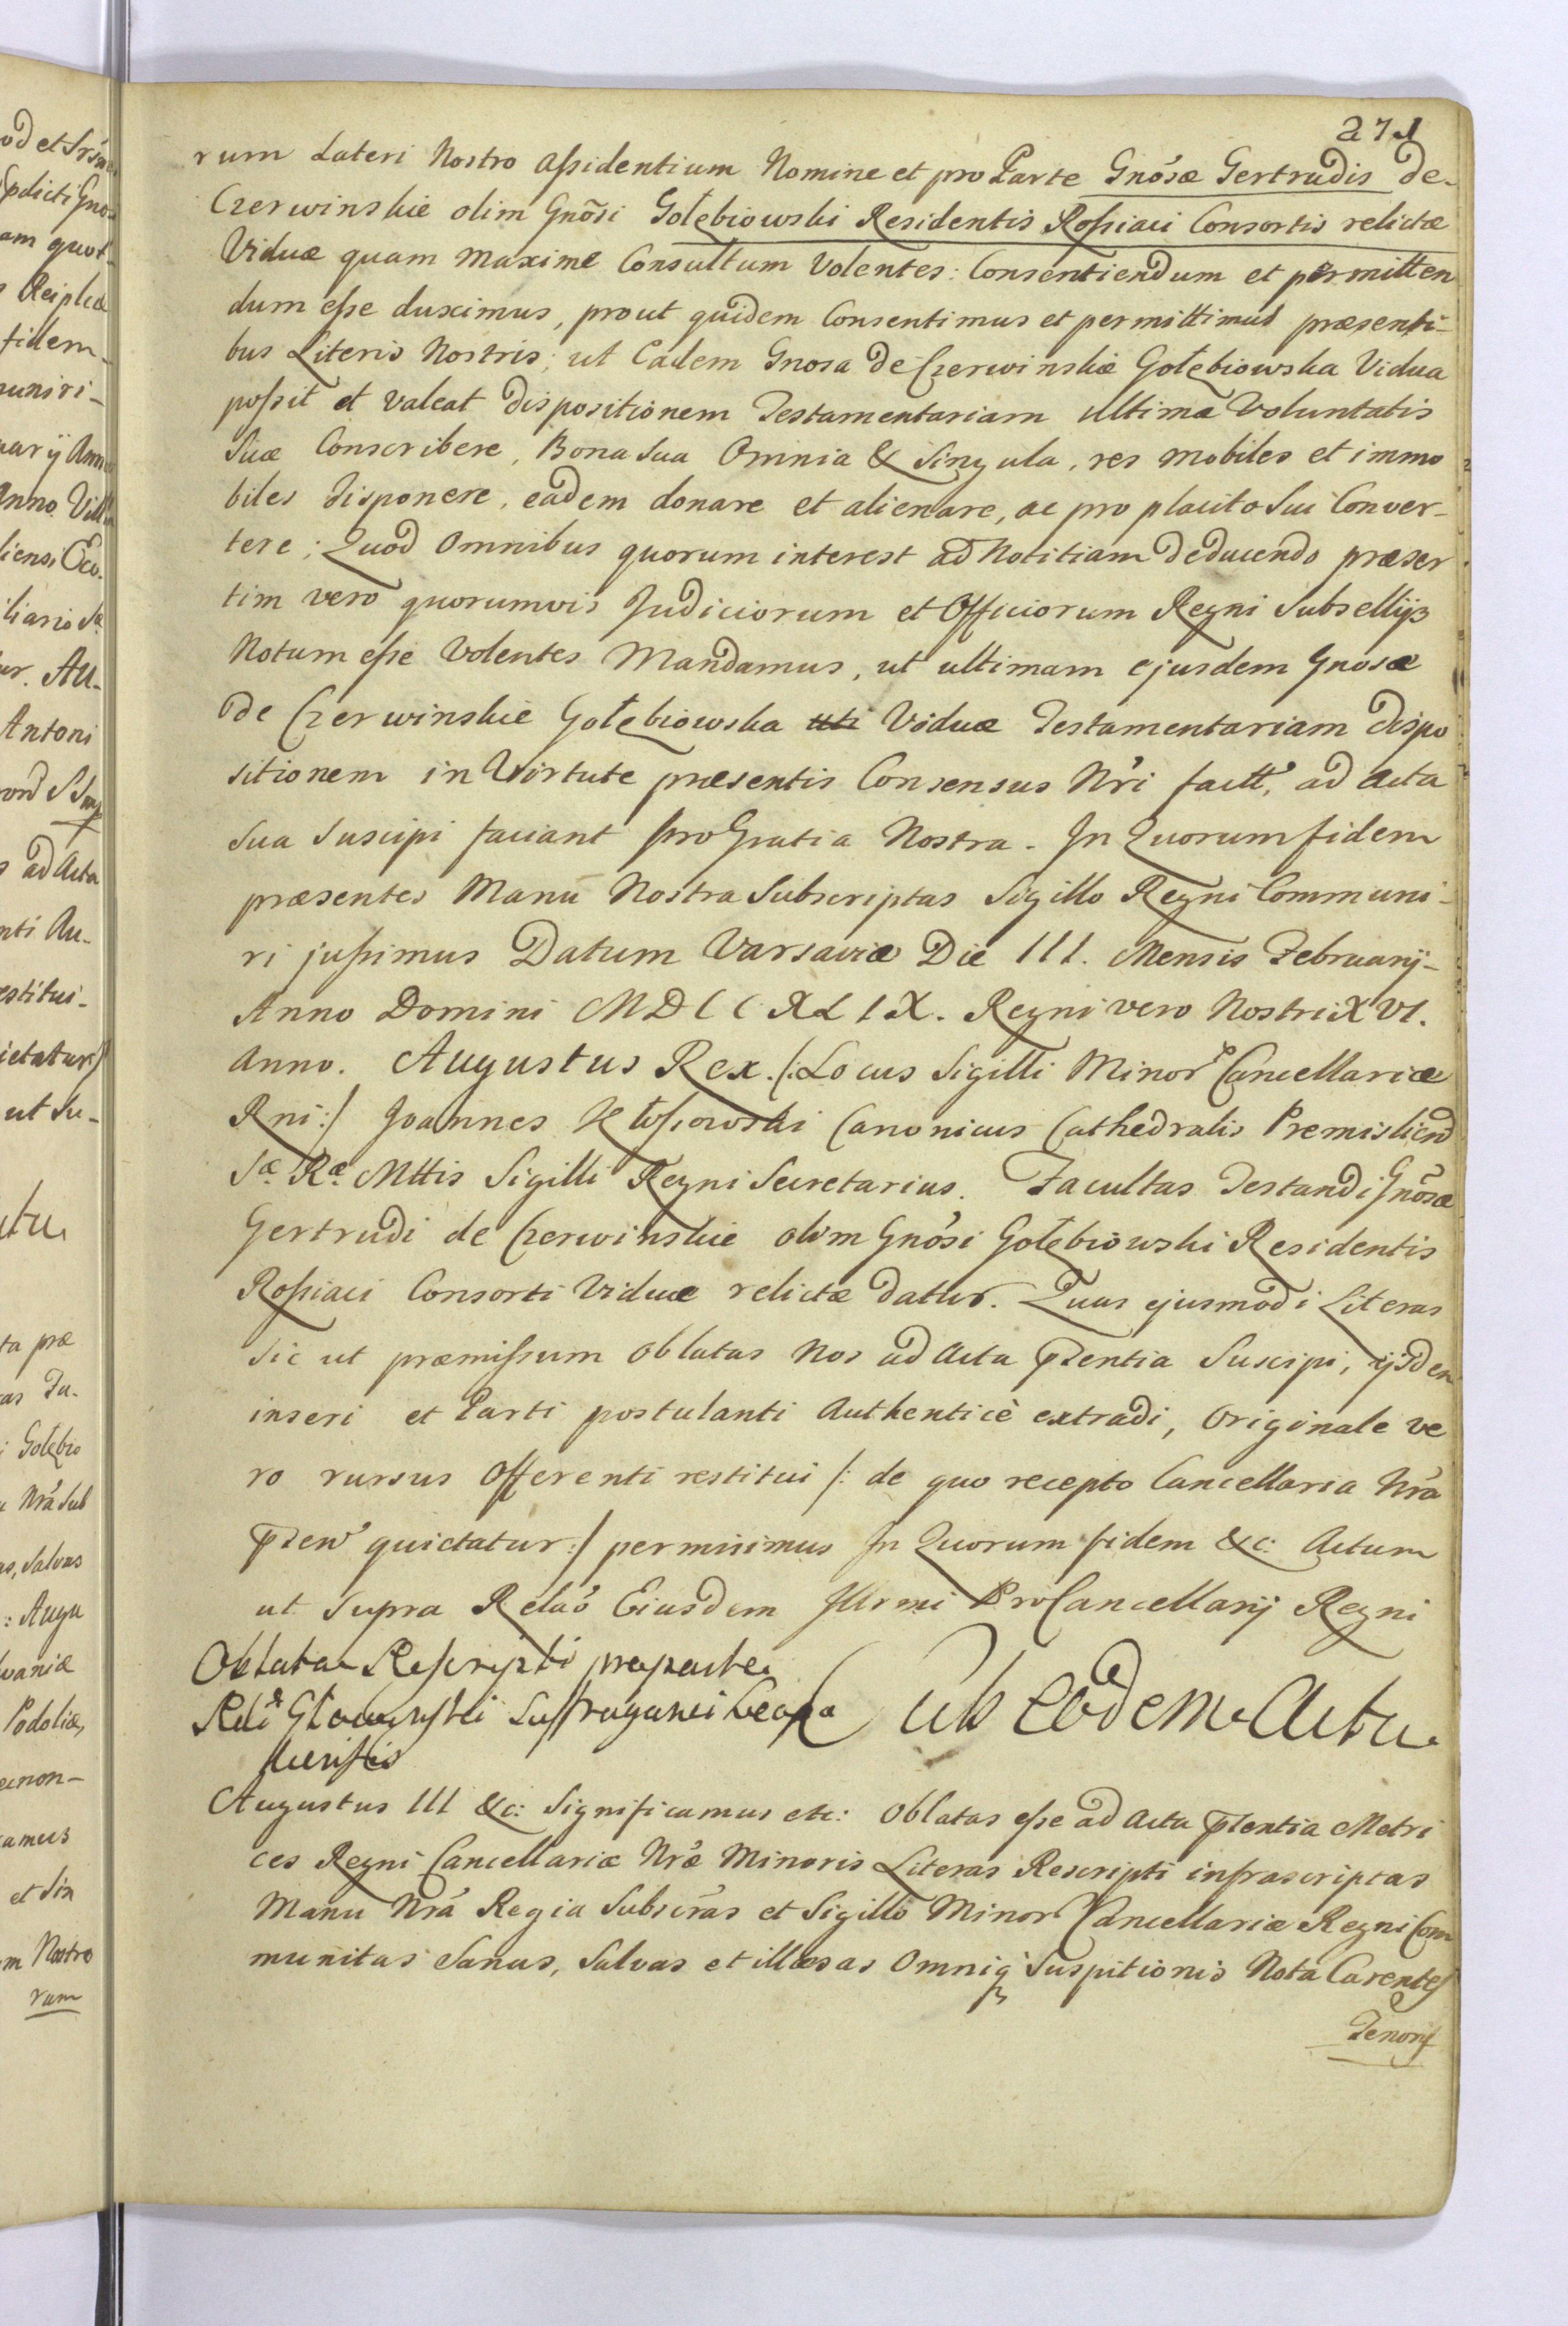 271
rum Lateri Nostro assidentium Nomine et pro Parte Gnõsæ Gertrudis de-
Czerwinskie olim Gnõsi Gołębiowski Residentis Rossiaci Consortis relictæ
Viduæ quam maxime Consultum Volentes: Consentiendum et permitten
dum esse duximus, prout quidem Consentimus et permittimus præsenti-
bus Literis Nostris; ut Eadem Gnosa de Czerwinskie Gołębiowska Vidua
possit et valeat dispositionem Testamentariam ultimæ Voluntatis
Suæ Conscribere, Bona sua Omnia & Singula, res mobiles et immo
biles disponere, eadem donare et alienare, ac pro placito sui Conver-
tere; Quod Omnibus quorum interest ad Notitiam deducendo præser
tim vero quorumvis Judiciorum et Officiorum Regni Subsellijs
Notum esse Volentes Mandamus, ut ultimam ejusdem Gnosæ
de Czerwinskie Gołębiowska uti Viduæ Testamentariam dispo
sitionem in Virtute præsentis Consensus Nri factt, ad acta
sua suscipi faciant pro Gratia Nostra. In Quorum fidem
præsentes Manu Nostra Subscriptas Sigillo Regni Communi-
ri jussimus Datum Varsaviæ Die III. Mensis Februarij-
Anno Domini MDCCXLIX. Regni vero Nostri XVI.
anno. Augustus Rex. /: Locus Sigilli Minor Cancellariæ
Rni :/ Joannes Kłossowski Canonicus Cathedralis Premislien
Sæ Ræ Mttis Sigilli Regni Secretarius. Facultas Testandi Gnõsæ
Gertrudi de Czerwinskie olim Gnõsi Gołębiowski Residentis
Rossiaci Consorti Viduæ relictæ datur. Quas ejusmodi Literas
sic ut præmissum oblatas Nos ad Acta pntia Suscipi, ijsdem
inseri et Parti postulanti Authenticè extradi, originale ve
ro rursus Offerenti restitui /: de quo recepto Cancellaria Nra
quietatur :/ permisimus In Quorum fidem &c: Actum
ut Supra Relaõ Eiusdem Illrmi ProCancellarij Regni
Oblata Rescripti pro parte
Suffraganei
Sub eodem Actu
Augustus III &c: Significamus etc: Oblatas esse ad Acta pntia Metri
ces Regni Cancellariæ Nræ Minoris Literas Rescripti infrascriptas
Manu Nra Regia Subscras et Sigillo Minor Cancellariæ Regni Com
munitas Sanas, Salvas et illæsas Omniq Suspitionis Nota Carentes
Tenoris